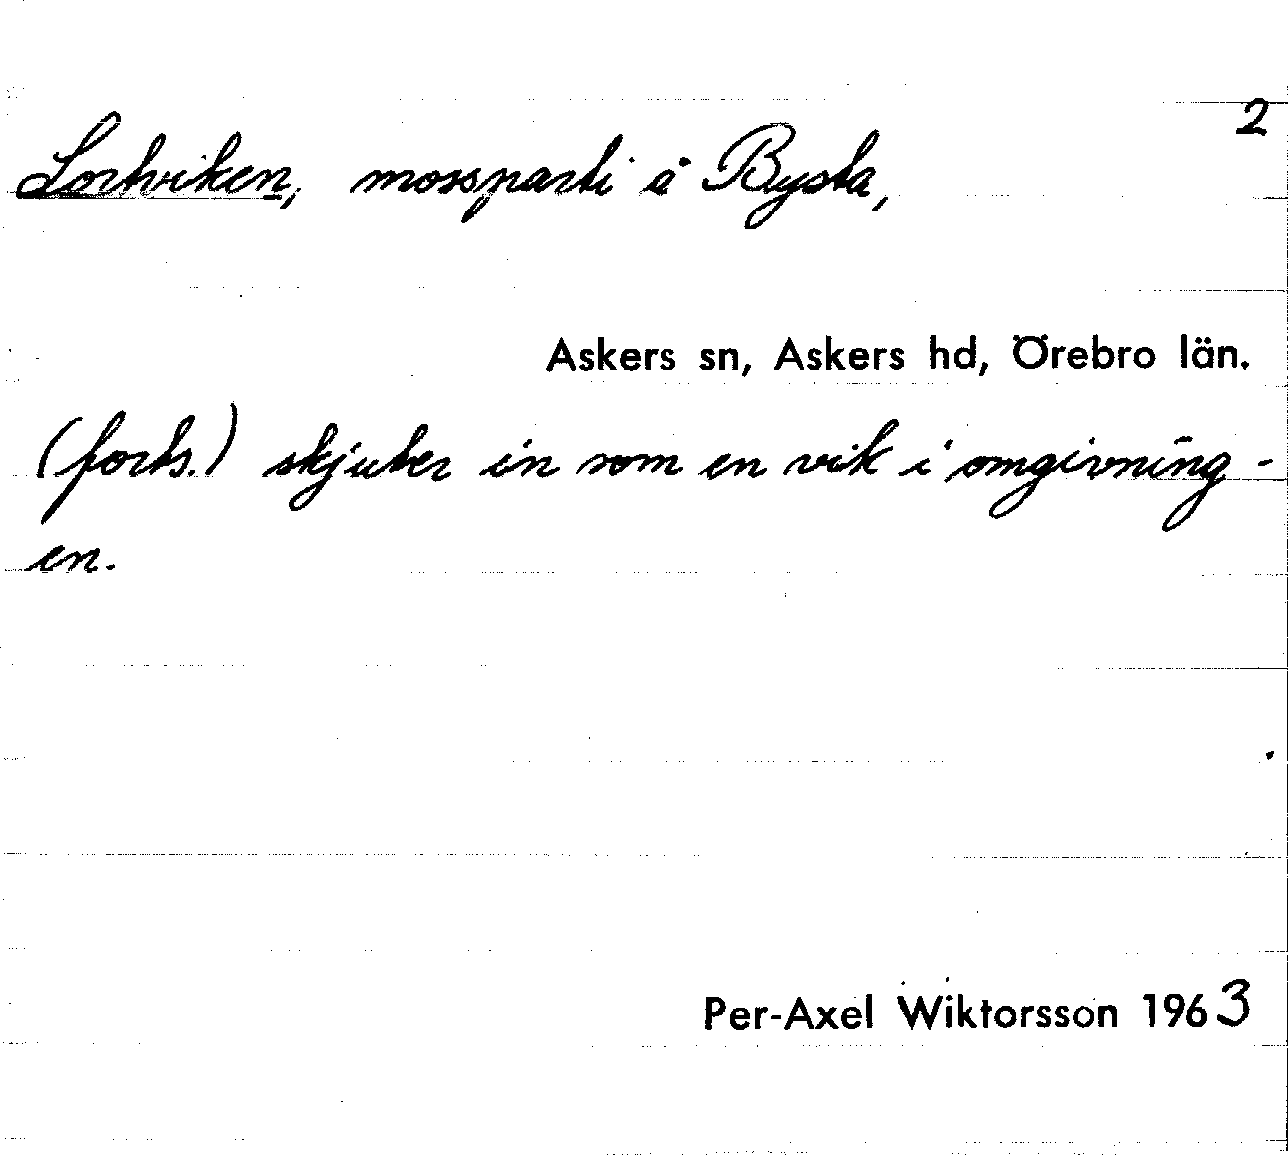 2
Lortviken, mossparti å Bysta,
Askers sn, Askers hd, Örebro län.
(forts.) skjuter in som en vik i omgivning-
en.
Per-Axel Wiktorsson 1963